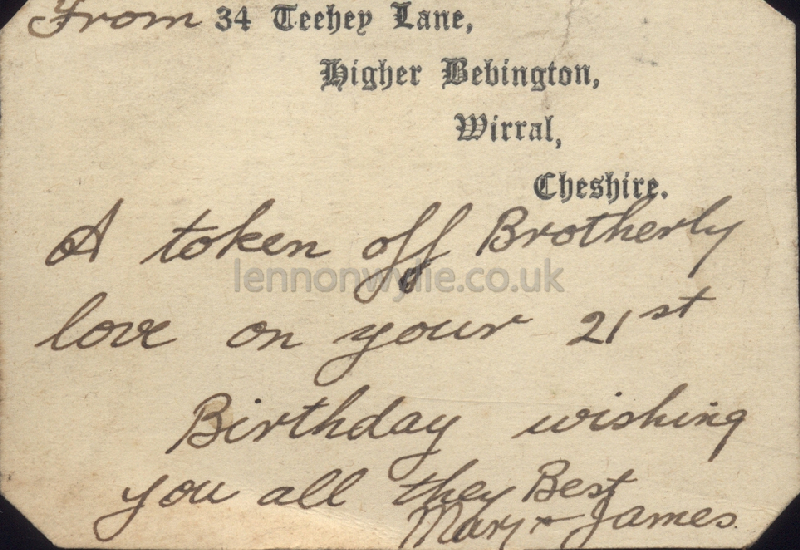 From 34 Teehey Lane,
Higher Bebington,
Wirral,
Cheshire.
A token off Brotherly
lennonwylie.co.uk
love on your 21st
Birthday wishing
you all they Best
Mary & James.